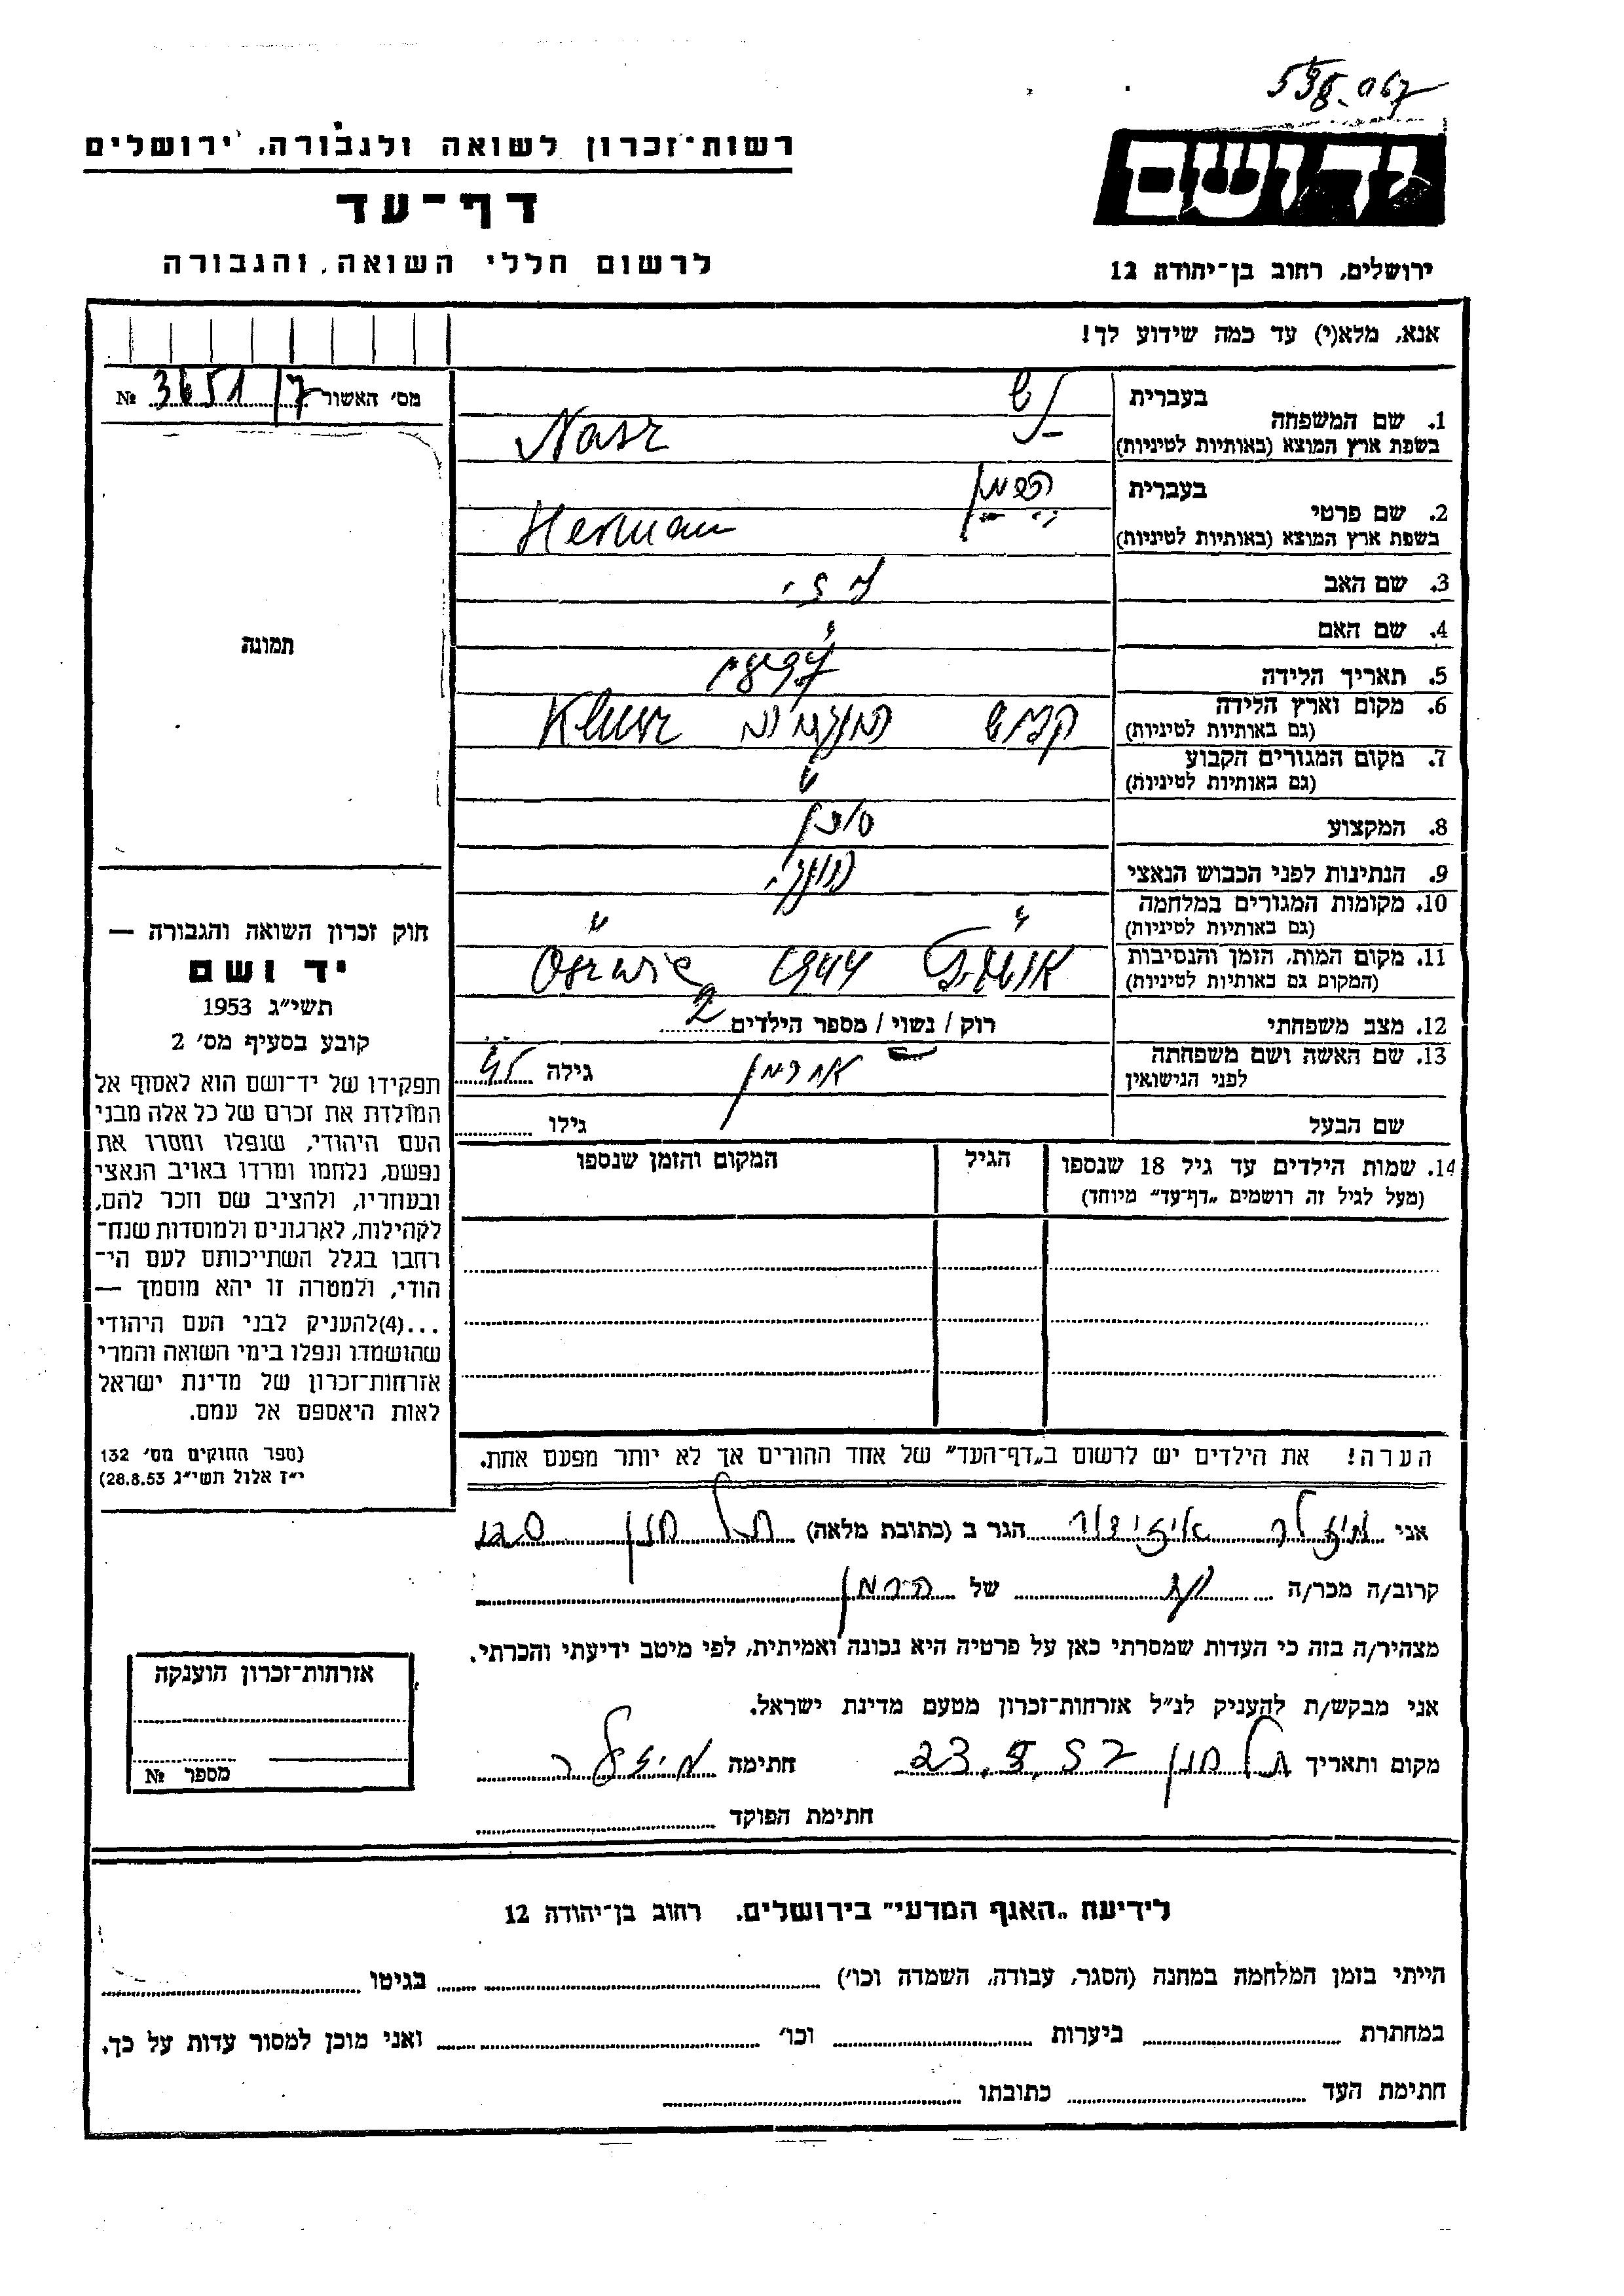 רשות־זכרון לשואה ולגבורה, ירושלים
יד ושם
דף־עד
לרשום חללי השואה והגבורה
ירושלים, רחוב בן־יהודה 12
אנא, מלא(י) עד כמה שידוע לך!
מס׳ האשור 3651/7 №
תמונה
בעברית נש
1. שם המשפחה
בשפת ארץ המוצא (באותיות לטיניות) Nasz
בעברית הרמן
2. שם פרטי
בשפת ארץ המוצא (באותיות לטיניות) Herman
3. שם האב
4. שם האם
5. תאריך הלידה
6. מקום וארץ הלידה
(גם באותיות לטיניות) Klusz
7. מקום המגורים הקבוע
(גם באותיות לטיניות)
8. המקצוע סוכן
9. הנתינות לפני הכבוש הנאצי
10. מקומות המגורים במלחמה
(גם באותיות לטיניות)
11. מקום המות, הזמן והנסיבות
(המקום גם באותיות לטיניות) 1944 Oszwic
12. מצב משפחתי רוק / נשוי / מספר הילדים 2
13. שם האשה ושם משפחתה
לפני הנישואין גילה
שם הבעל גילו
14. שמות הילדים עד גיל 18 שנספו הגיל המקום והזמן שנספו
(מעל לגיל זה רושמים „דף־עד״ מיוחד)
הערה! את הילדים יש לרשום ב„דף־העד״ של אחד ההורים אך לא יותר מפעם אחת.
חוק זכרון השואה והגבורה —
יד ושם
תשי״ג 1953
קובע בסעיף מס׳ 2
תפקידו של יד־ושם הוא לאסוף אל
המולדת את זכרם של כל אלה מבני
העם היהודי, שנפלו ומסרו את
נפשם, נלחמו ומרדו באויב הנאצי
ובעוזריו, ולהציב שם וזכר להם,
לקהילות, לארגונים ולמוסדות שנח־
רחבו בגלל השתייכותם לעם הי־
הודי, ולמטרה זו יהא מוסמך —
...(4)להעניק לבני העם היהודי
שהושמדו ונפלו בימי השואה והמרי
אזרחות־זכרון של מדינת ישראל
לאות היאספם אל עמם.
(ספר החוקים מס׳ 132
י״ז אלול תשי״ג 28.8.53)
אני מיזלר איזידור הגר ב (כתובת מלאה) תל חנן
קרוב/ה מכר/ה של הרמן
מצהיר/ה בזה כי העדות שמסרתי כאן על פרטיה היא נכונה ואמיתית, לפי מיטב ידיעתי והכרתי.
אני מבקש/ת להעניק לנ״ל אזרחות־זכרון מטעם מדינת ישראל.
מקום ותאריך תל חנן חתימה מיזלר
חתימת הפוקד
אזרחות־זכרון הוענקה
מספר №
לידיעת „האגף המדעי״ בירושלים, רחוב בן־יהודה 12
הייתי בזמן המלחמה במחנה (הסגר, עבודה, השמדה וכו׳) בגיטו
במחתרת ביערות וכו׳ ואני מוכן למסור עדות על כך.
חתימת העד כתובתו